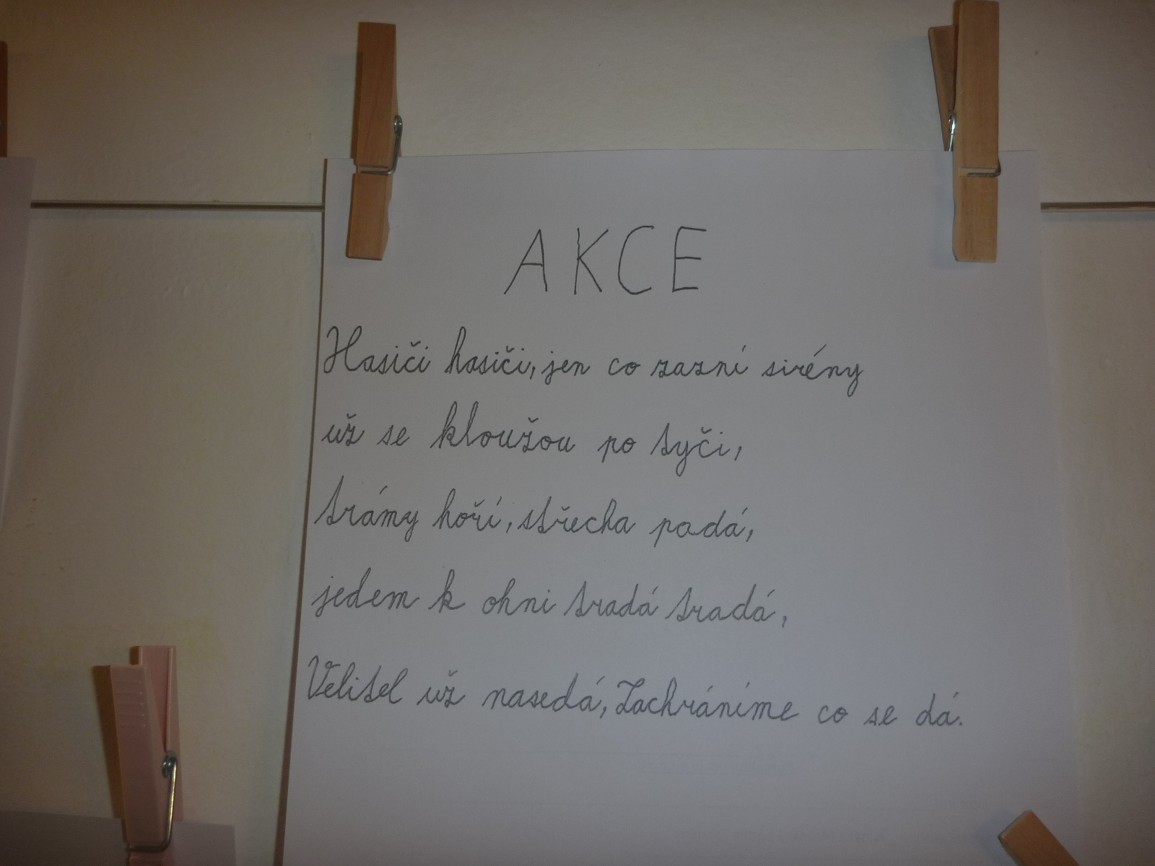 AKCE
Hasiči hasiči, jen co zazní sirény
už se kloužou po tyči,
trámy hoří, střecha padá,
jedem k ohni tradá tradá,
Velitel už nasedá, Zachráníme co se dá.